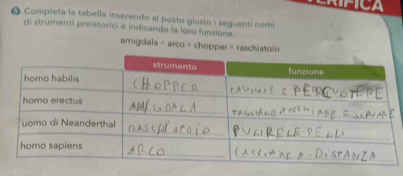 VERIFICA
Completa la tabella inserendo al posto giusto i seguenti nomi
di strumenti preistorici e indicando la loro funzione.
amigdala - arco - chopper - raschiatoio
strumento funzione
homo habilis CHOPPER TAGLIARE E PERCUOTERE
homo erectus AMIGDALA TAGLIARE E SCAVARE
uomo di Neanderthal RASCHIATOIO PULIRE LE PELLI
homo sapiens ARCO CACCIARE A DISTANZA